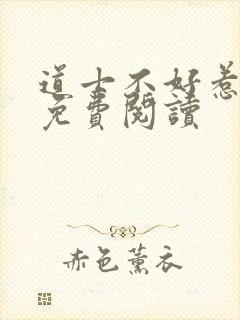 道士不好惹
免費閱讀
赤色薰衣